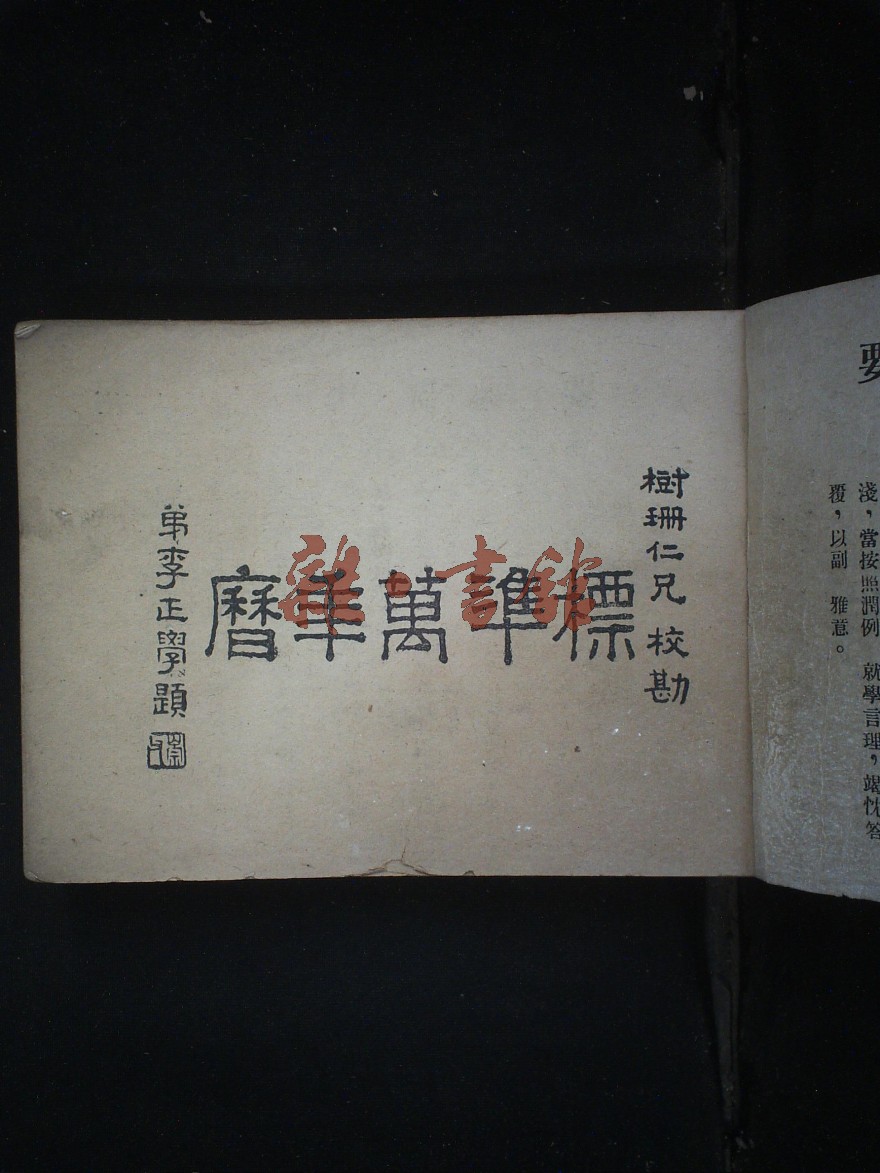 要
淺，當按照潤例　就學言理，竭忱答
覆，以副　雅意。
樹珊仁兄校勘
標準萬年曆
弟李正學題
雜·書館